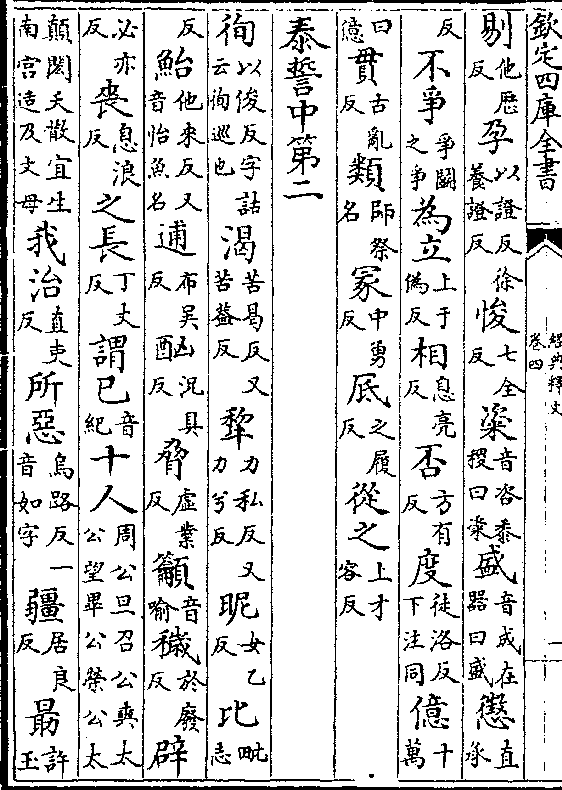 欽定四庫全書 經典釋文 卷四 一
剔他歷反孕以證反徐養證反悛七全反粢音咨黍稷曰粢盛音成在器曰盛懲直承
反不爭爭鬭之爭為立上于偽反相息亮反否方有反度徒洛反下注同億十萬
曰億貫古亂反類師祭名冢中勇反厎之履反從之上才容反
泰誓中第二
徇以俊反字詁云徇巡也渴苦曷反又苦蓋反犂力私反又力兮反昵女乙反比毗志
反鮐他來反又音怡魚名逋布吳反酗況具反脅虛業反籲音喻穢於廢反辟
必亦反喪息浪反之長丁丈反謂已音紀十人周公旦召公奭太公望畢公榮公太
顛閎夭散宜生南宮适及文母我治直吏反所惡烏路反一音如字疆居良反朂許玉